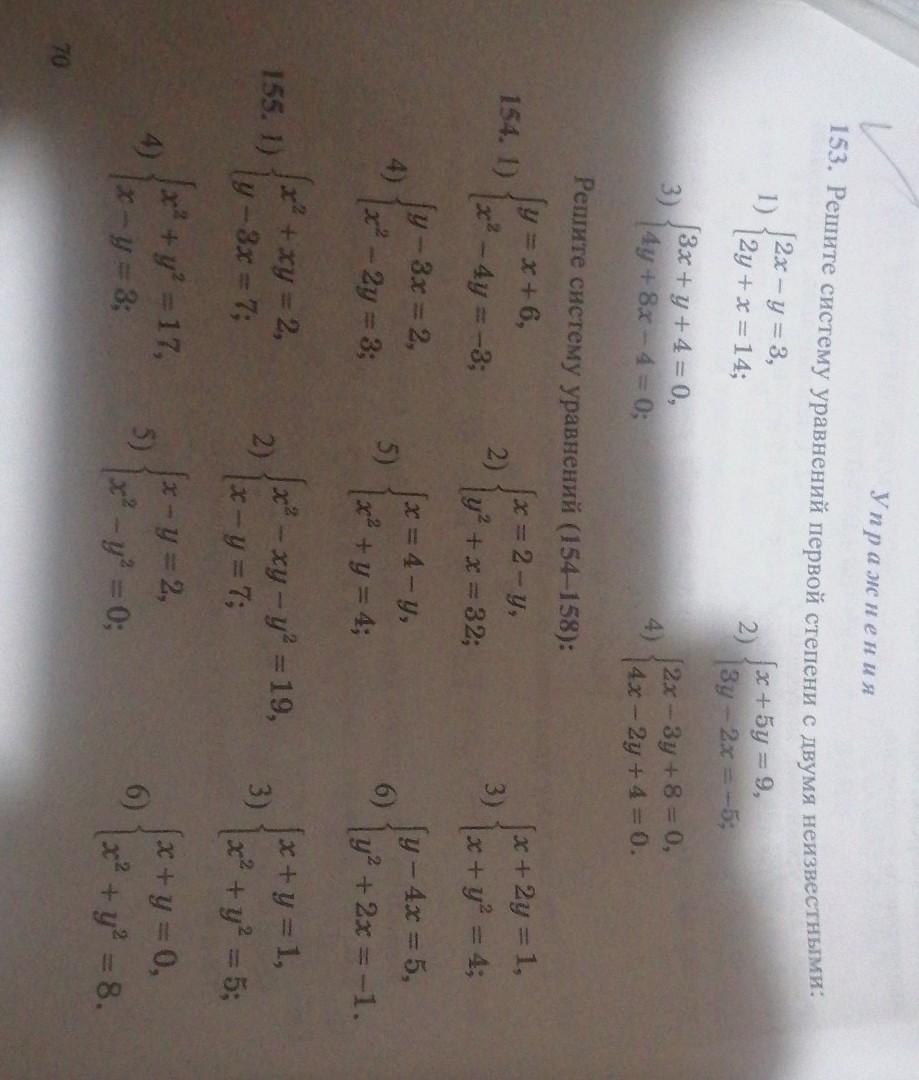 Упражнения
153. Решите систему уравнений первой степени с двумя неизвестными:
1) {2x − y = 3, 2y + x = 14; 2) {x + 5y = 9, 3y − 2x = −5;
3) {3x + y + 4 = 0, 4y + 8x − 4 = 0; 4) {2x − 3y + 8 = 0, 4x − 2y + 4 = 0.
Решите систему уравнений (154–158):
154. 1) {y = x + 6, x² − 4y = −3; 2) {x = 2 − y, y² + x = 32; 3) {x + 2y = 1, x + y² = 4;
4) {y − 3x = 2, x² − 2y = 3; 5) {x = 4 − y, x² + y = 4; 6) {y − 4x = 5, y² + 2x = −1.
155. 1) {x² + xy = 2, y − 3x = 7; 2) {x² − xy − y² = 19, x − y = 7; 3) {x + y = 1, x² + y² = 5;
4) {x² + y² = 17, x − y = 3; 5) {x − y = 2, x² − y² = 0; 6) {x + y = 0, x² + y² = 8.
70